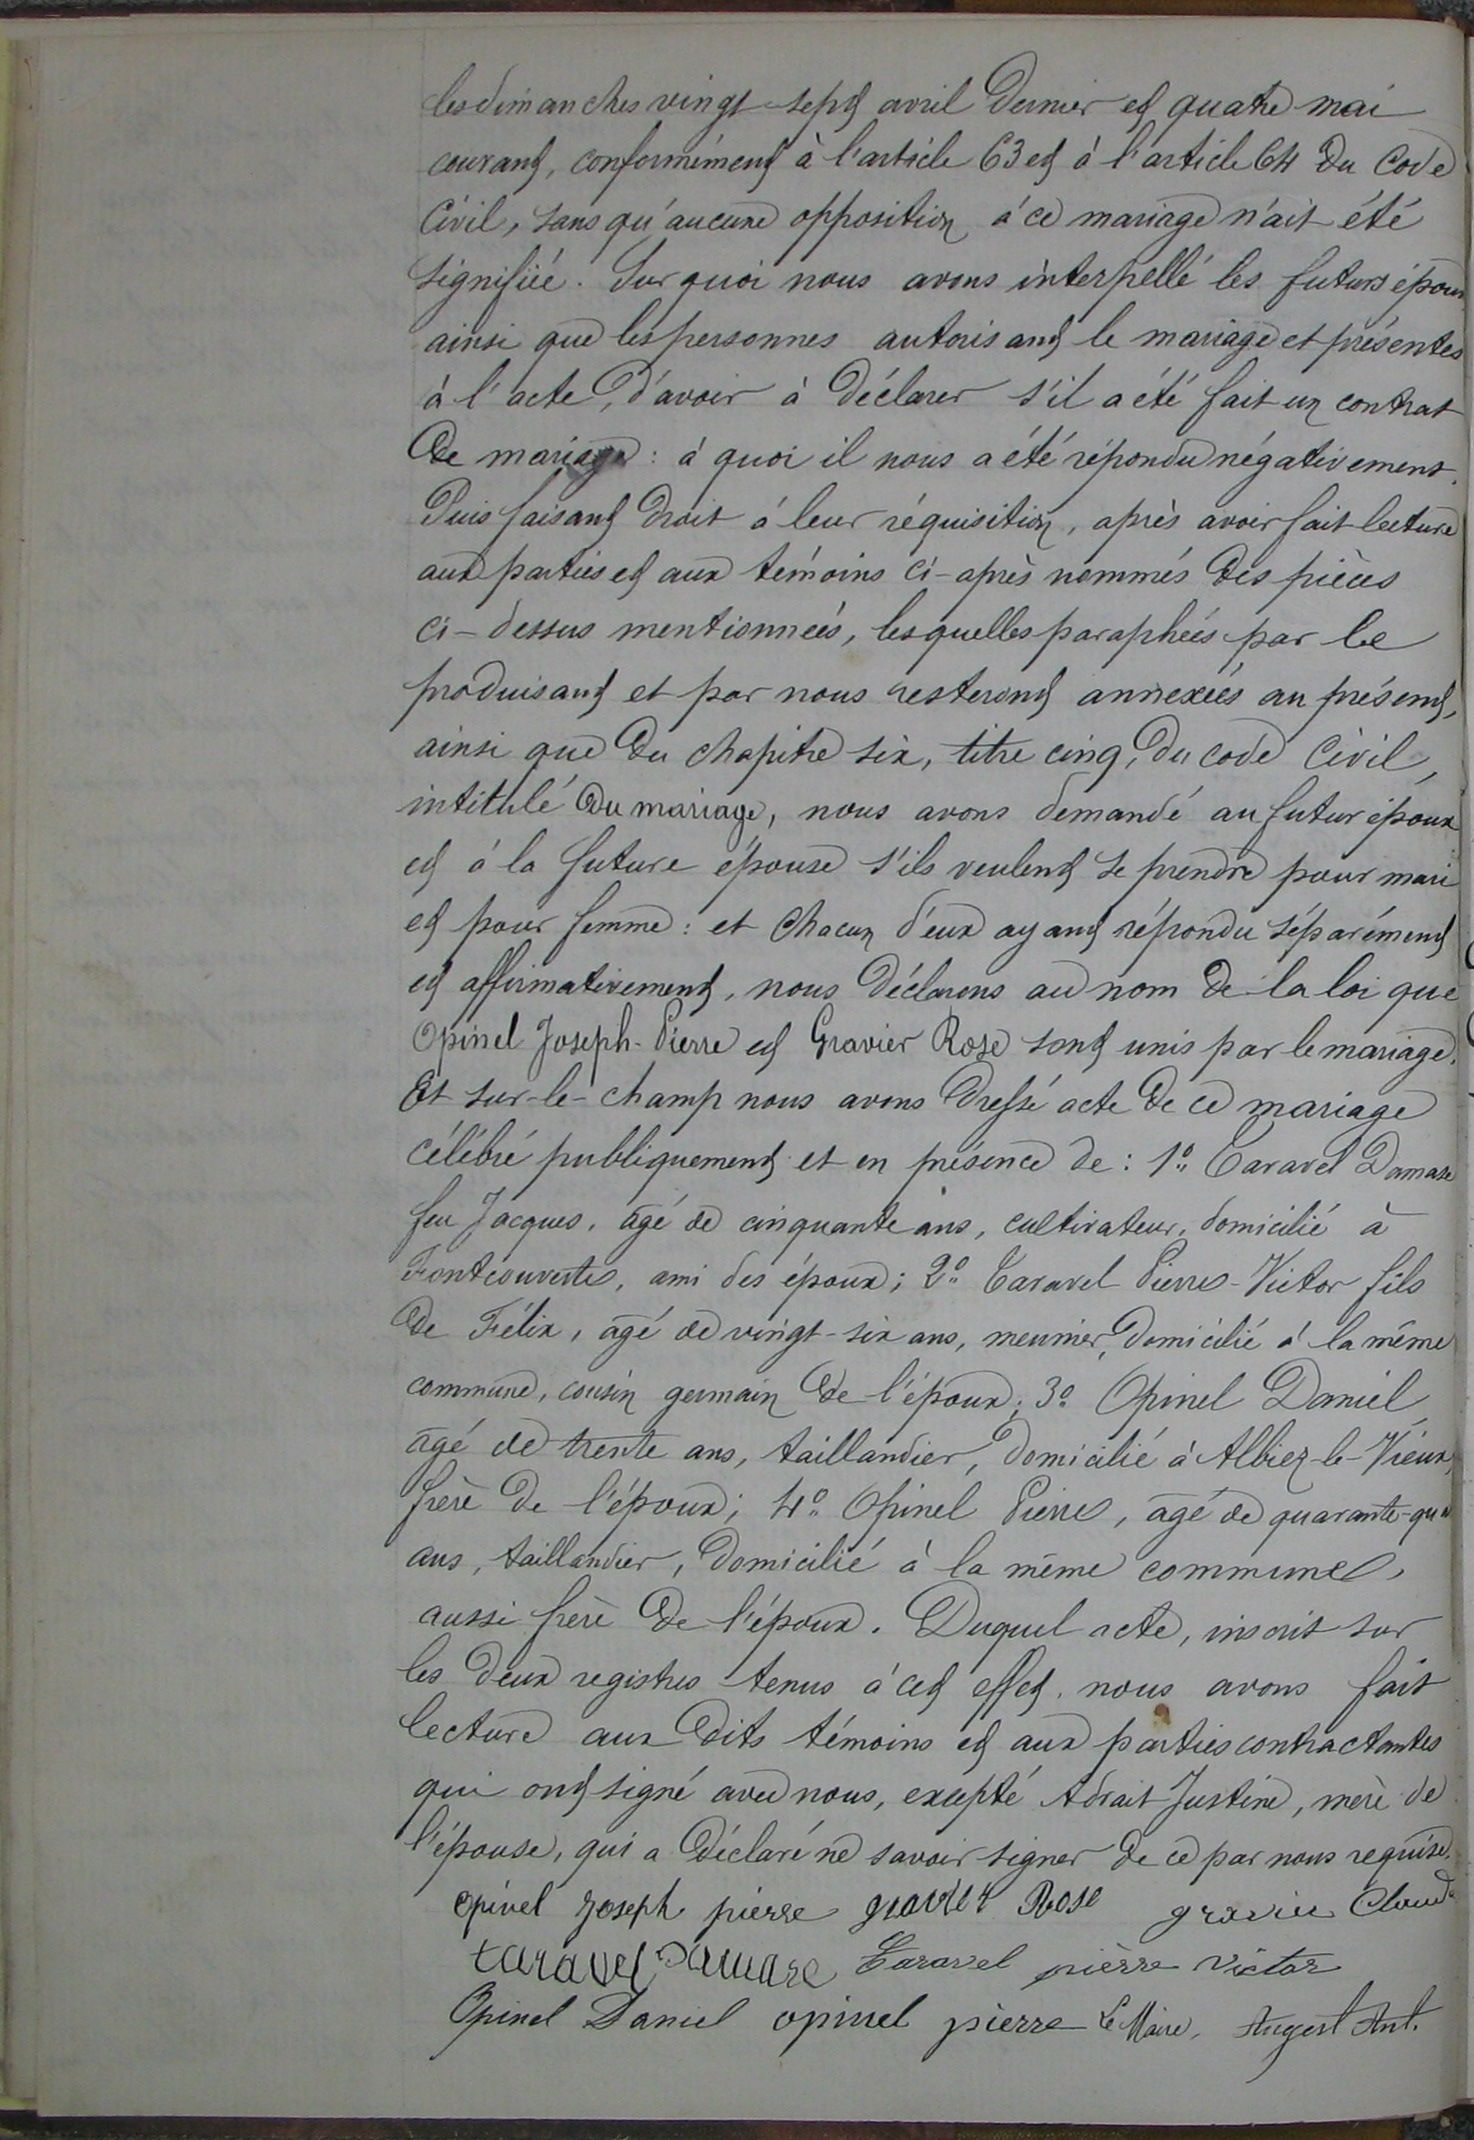 les dimanches vingt-sept avril dernier et quatre mai
courant, conformément à l'article 63 et à l'article 64 du Code
Civil, sans qu'aucune opposition à ce mariage n'ait été
signifiée. Sur quoi nous avons interpellé les futurs époux
ainsi que les personnes autorisant le mariage et présentes
à l'acte, d'avoir à déclarer s'il a été fait un contrat
de mariage : à quoi il nous a été répondu négativement.
Puis faisant droit à leur réquisition, après avoir fait lecture
aux parties et aux témoins ci-après nommés des pièces
ci-dessus mentionnées, lesquelles paraphées par le
produisant et par nous resteront annexées au présent,
ainsi que du chapitre six, titre cinq, du code Civil,
intitulé du mariage, nous avons demandé au futur époux
et à la future épouse s'ils veulent se prendre pour mari
et pour femme : et chacun d'eux ayant répondu séparément
et affirmativement, nous déclarons au nom de la loi que
Opinel Joseph-Pierre et Gravier Rose sont unis par le mariage.
Et sur-le-champ nous avons dressé acte de ce mariage
célébré publiquement et en présence de : 1° Taravel Damase
feu Jacques, âgé de cinquante ans, cultivateur, domicilié à
Fontcouverte, ami des époux ; 2° Taravel Pierre-Victor fils
de Félix, âgé de vingt-six ans, meunier, domicilié à la même
commune, cousin germain de l'époux ; 3° Opinel Daniel
âgé de trente ans, taillandier, domicilié à Albiez-le-Vieux,
frère de l'époux ; 4° Opinel Pierre, âgé de quarante-
ans, taillandier, domicilié à la même commune,
aussi frère de l'époux. Duquel acte, inscrit sur
les deux registres tenus à cet effet, nous avons fait
lecture aux dits témoins et aux parties contractantes
qui ont signé avec nous, excepté Adrait Justine, mère de
l'épouse, qui a déclaré ne savoir signer de ce par nous requise.
opinel joseph pierre gravier Rose gravier Claude
taravel Damase Taravel pierre victor
Opinel Daniel opinel pierre Le Maire, Augert Ant.